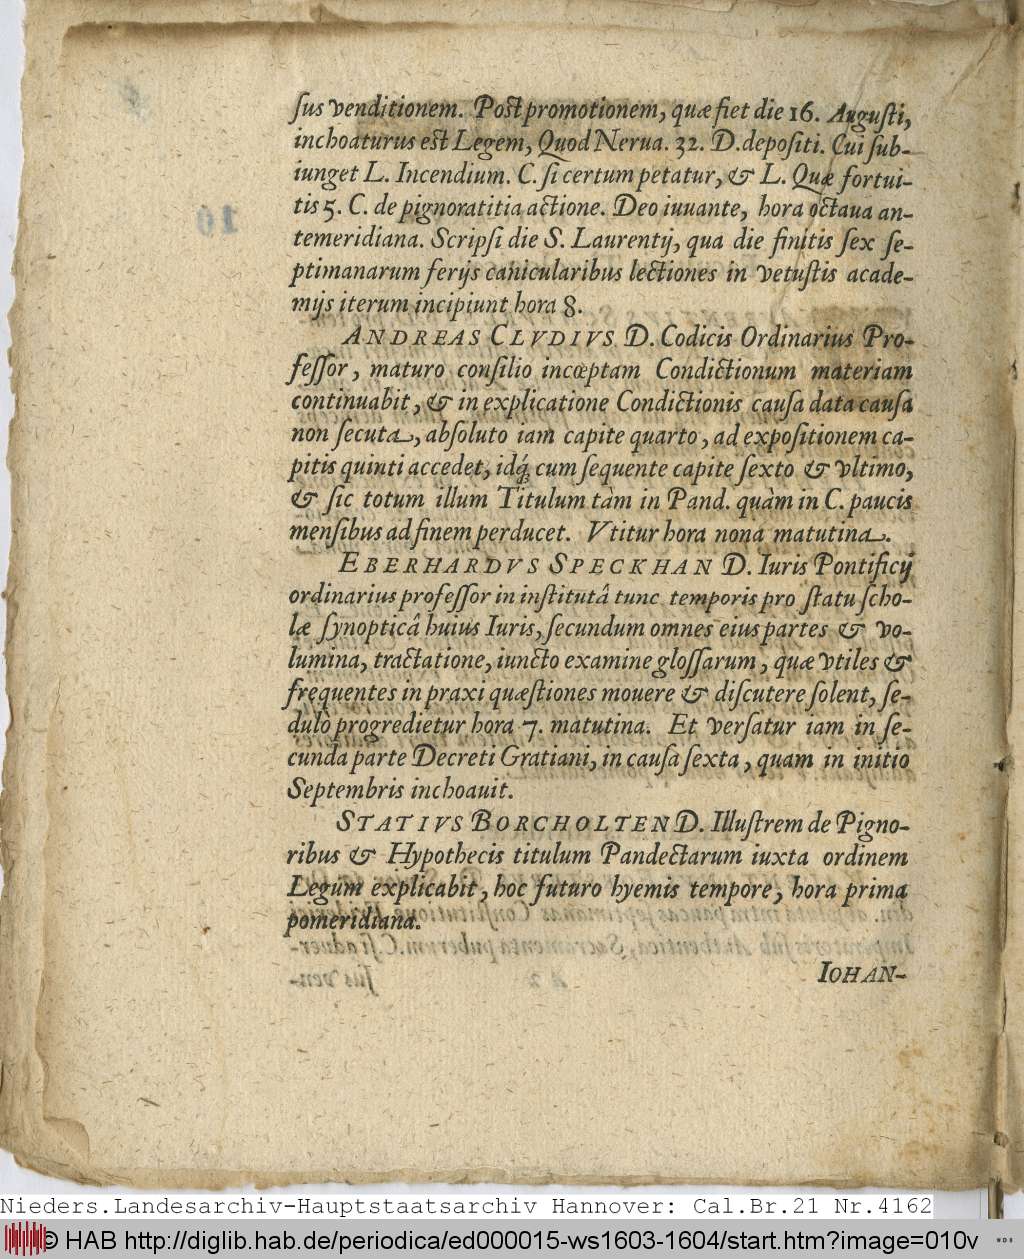 ſus venditionem. Poſt promotionem, quæ fiet die 16. Auguſti,
inchoaturus eſt Legem, Quod Nerua. 32. D. depoſiti. Cui ſub-
iunget L. Incendium. C. ſi certum petatur, & L. Quæ fortui-
tis 5. C. de pignoratitia actione. Deo iuuante, hora octaua an-
temeridiana. Scripſi die S. Laurentij, qua die finitis ſex ſe-
ptimanarum ferijs canicularibus lectiones in vetuſtis acade-
mijs iterum incipiunt hora 8.
ANDREAS CLVDIVS D. Codicis Ordinarius Pro-
feſſor, maturo conſilio incœptam Condictionum materiam
continuabit, & in explicatione Condictionis cauſa data cauſa
non ſecuta, abſoluto iam capite quarto, ad expoſitionem ca-
pitis quinti accedet, idq́; cum ſequente capite ſexto & vltimo,
& ſic totum illum Titulum tàm in Pand. quàm in C. paucis
menſibus ad finem perducet. Vtitur hora nona matutina.
EBERHARDVS SPECKHAN D. Iuris Pontificij
ordinarius profeſſor in inſtitutâ tunc temporis pro ſtatu ſcho-
læ ſynopticâ huius Iuris, ſecundum omnes eius partes & vo-
lumina, tractatione, iuncto examine gloſſarum, quæ vtiles &
frequentes in praxi quæſtiones mouere & diſcutere ſolent, ſe-
dulò progredietur hora 7. matutina. Et verſatur iam in ſe-
cunda parte Decreti Gratiani, in cauſa ſexta, quam in initio
Septembris inchoauit.
STATIVS BORCHOLTEN D. Illuſtrem de Pigno-
ribus & Hypothecis titulum Pandectarum iuxta ordinem
Legum explicabit, hoc futuro hyemis tempore, hora prima
pomeridiana.
IOHAN-
Nieders.Landesarchiv-Hauptstaatsarchiv Hannover: Cal.Br.21 Nr.4162
© HAB http://diglib.hab.de/periodica/ed000015-ws1603-1604/start.htm?image=010v